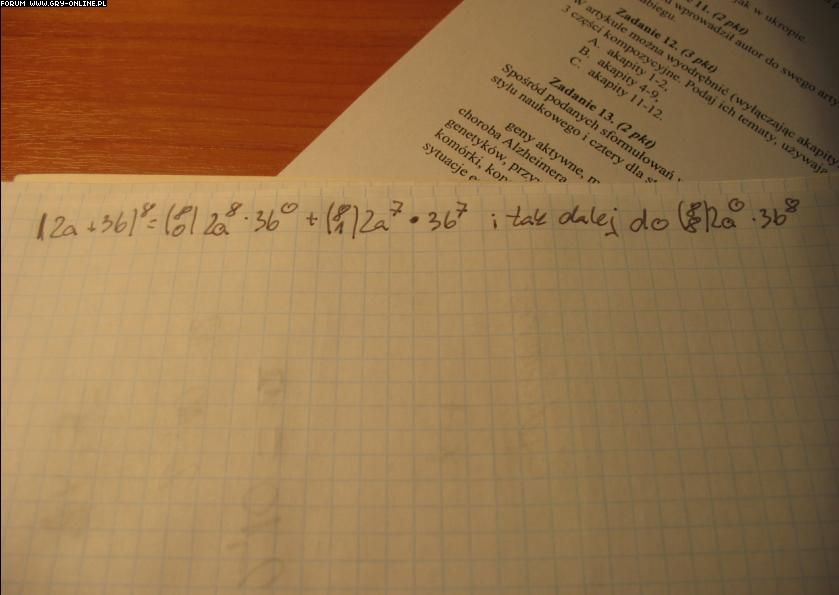 FORUM WWW.GRY-ONLINE.PL
11. (2 pkt)
jak w ukropie.
wprowadził autor do swego
Zadanie 12. (3 pkt)
W artykule można wyodrębnić (wyłączając akapity
3 części kompozycyjne. Podaj ich tematy, używając
A. akapity 1-2,
B. akapity 4-9,
C. akapity 11-12.
Zadanie 13. (2 pkt)
Spośród podanych sformułowań
stylu naukowego i cztery dla
geny aktywne,
choroba Alzheimera
genetyków,
komórki,
sytuacje
(2a+3b)^8 = (8 0) 2a^8 · 3b^0 + (8 1) 2a^7 · 3b^7 i tak dalej do (8 8) 2a^0 · 3b^8